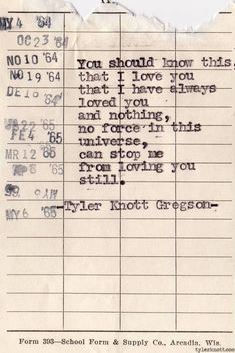 MY 4 '64
OC 23 '64
NO 10 '64
NO 19 '64
DE 16 '64
JA 22 '65
FE 4 '65
MR 12 '65
MY 6 '65
You should know this,
that I love you
that I have always
loved you
and nothing,
no force in this
universe,
can stop me
from loving you
still.
-Tyler Knott Gregson-
Form 393—School Form & Supply Co., Arcadia, Wis.
tylerknott.com